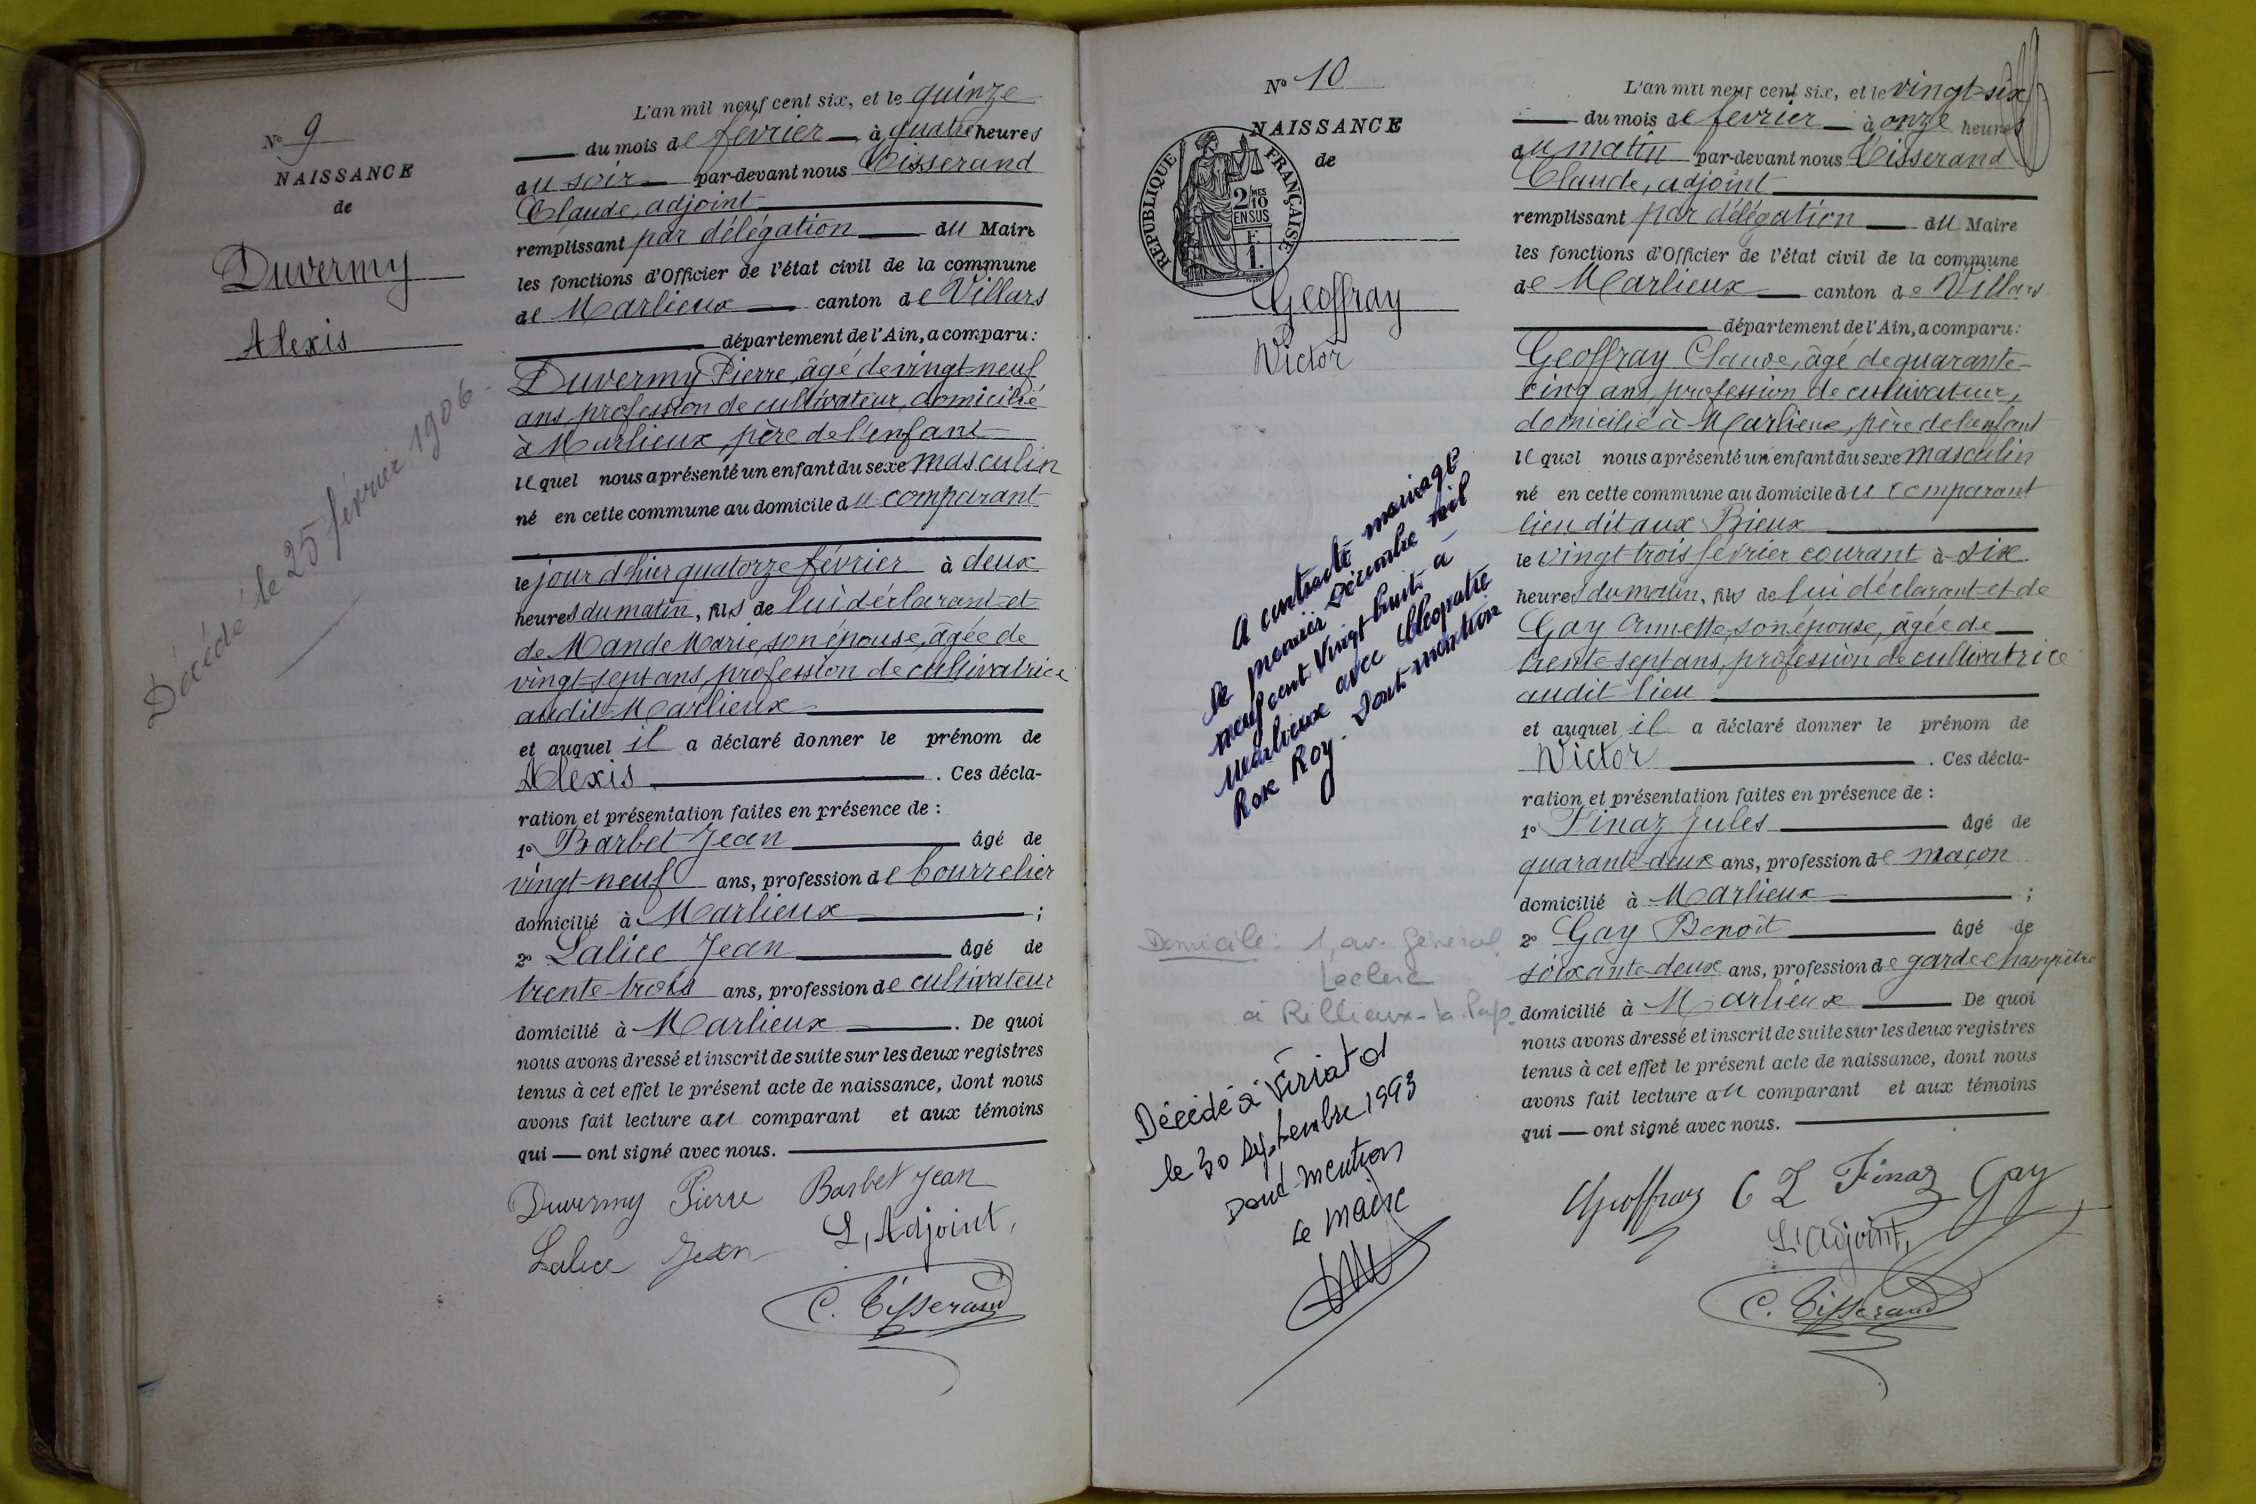 Nº 9
NAISSANCE
de
Duvermy
Alexis
Décédé le 25 février 1906
L'an mil neuf cent six, et le quinze
du mois de février à quatre heures
du soir par-devant nous Tisserand
Claude, adjoint
remplissant par délégation du Maire
les fonctions d'Officier de l'état civil de la commune
de Marlieux canton de Villars
département de l'Ain, a comparu :
Duvermy Pierre, âgé de vingt-neuf
ans, profession de cultivateur, domicilié
à Marlieux, père de l'enfant
lequel nous a présenté un enfant du sexe masculin
né en cette commune au domicile du comparant
le jour d'hier quatorze février à deux
heures du matin, fils de lui déclarant et
de Mande Marie, son épouse, âgée de
vingt-sept ans, profession de cultivatrice
audit Marlieux
et auquel il a déclaré donner le prénom de
Alexis. Ces décla-
ration et présentation faites en présence de :
1º Barbet Jean âgé de
vingt-neuf ans, profession de bourrelier
domicilié à Marlieux ;
2º Lalice Jean âgé de
trente-trois ans, profession de cultivateur
domicilié à Marlieux. De quoi
nous avons dressé et inscrit de suite sur les deux registres
tenus à cet effet le présent acte de naissance, dont nous
avons fait lecture au comparant et aux témoins
qui — ont signé avec nous.
Duvermy Pierre Barbet Jean
Lalice Jean L'Adjoint,
C. Tisserand
Nº 10
NAISSANCE
de
RÉPUBLIQUE FRANÇAISE
2/10 MES
EN SUS
F.
1.
Geoffray
Victor
A contracté mariage
le premier Décembre mil
neuf cent vingt huit à
Marlieux avec Cléopatre
Rose Roy. Dont mention
Domicile : 1, av. Général
Leclerc
à Rillieux-la-Pap.
Décédé à Viriat
le 30 septembre 1993
Dont mention
Le maire
L'an mil neuf cent six, et le vingt-six
du mois de février à onze heures
du matin par-devant nous Tisserand
Claude, adjoint
remplissant par délégation du Maire
les fonctions d'Officier de l'état civil de la commune
de Marlieux canton de Villars
département de l'Ain, a comparu :
Geoffray Claude, âgé de quarante-
cinq ans, profession de cultivateur,
domicilié à Marlieux, père de l'enfant
lequel nous a présenté un enfant du sexe masculin
né en cette commune au domicile du comparant
lieu dit aux Rieux
le vingt trois février courant à six
heures du matin, fils de lui déclarant et de
Gay Annette, son épouse, âgée de
trente sept ans, profession de cultivatrice
audit lieu
et auquel il a déclaré donner le prénom de
Victor. Ces décla-
ration et présentation faites en présence de :
1º Finaz Jules âgé de
quarante-deux ans, profession de maçon
domicilié à Marlieux ;
2º Gay Benoît âgé de
soixante-deux ans, profession de garde champêtre
domicilié à Marlieux De quoi
nous avons dressé et inscrit de suite sur les deux registres
tenus à cet effet le présent acte de naissance, dont nous
avons fait lecture au comparant et aux témoins
qui — ont signé avec nous.
Geoffray C L Finaz Gay
L'adjoint,
C. Tisserand